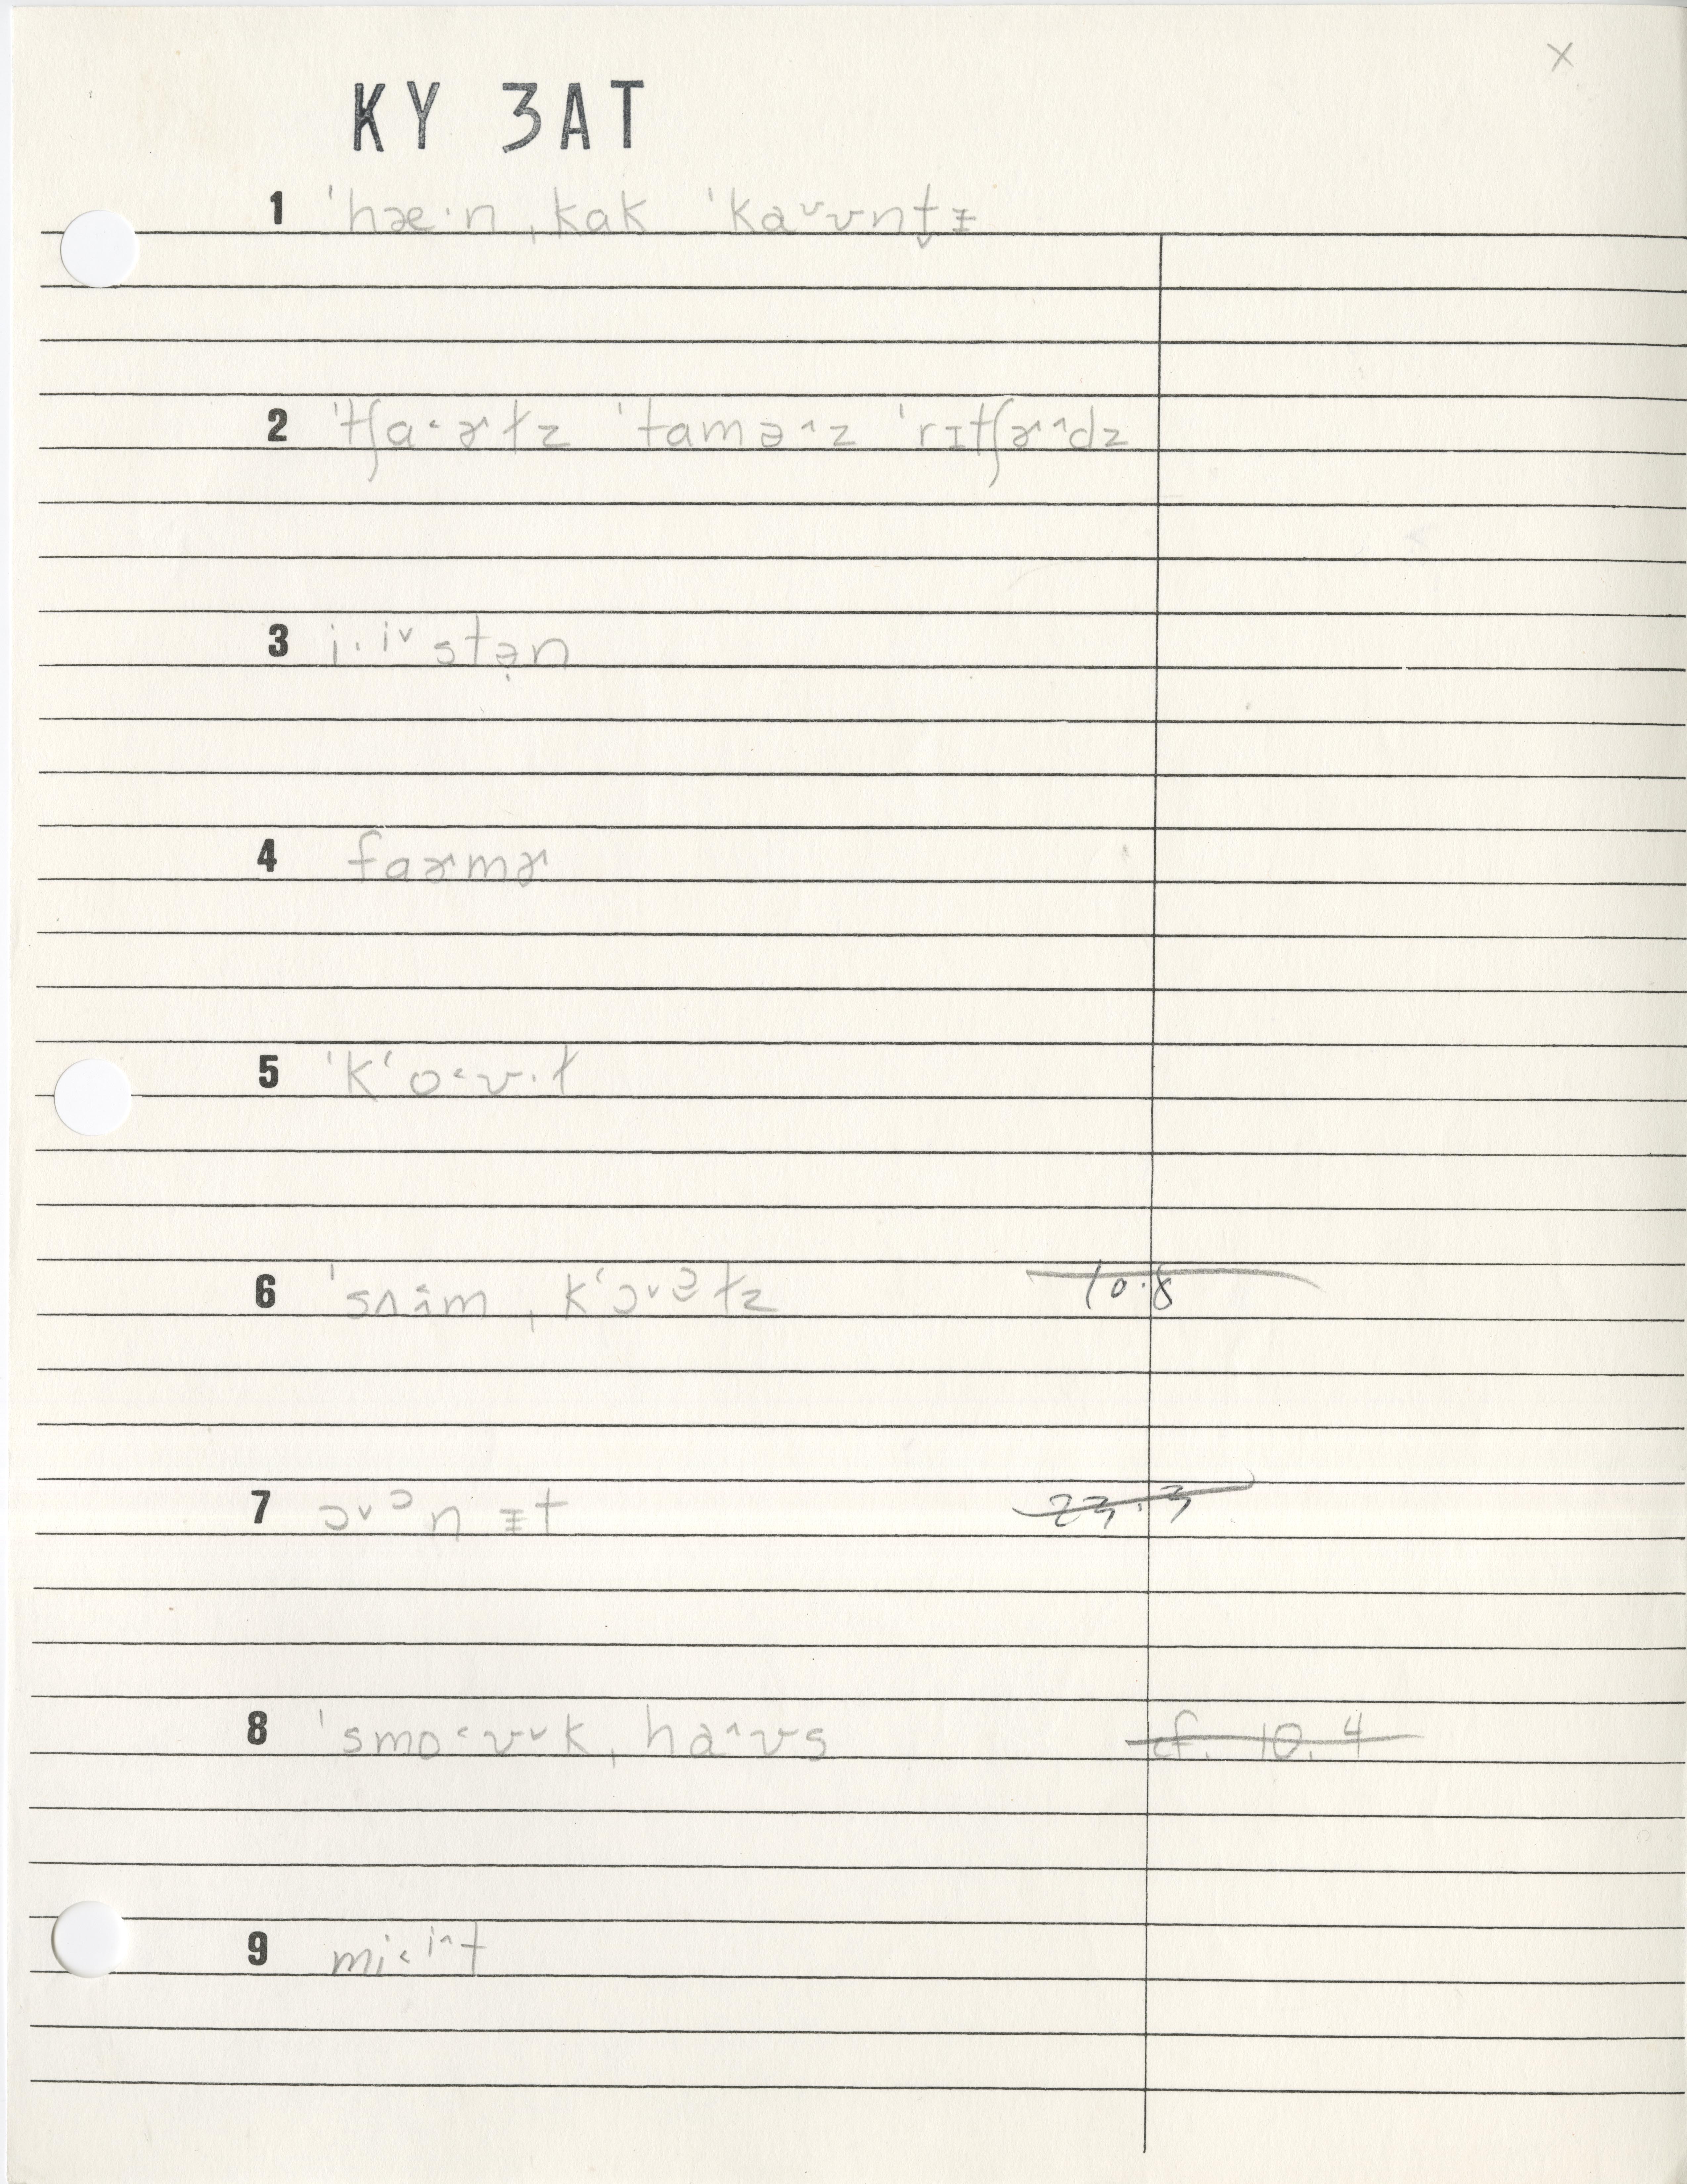 X
KY 3AT
1 ˈhæ·n ˌkak ˈka˅ʊnt̬ɨ
2 ˈtʃa˂ɚɫz ˈtamə˄z ˈrɪtʃɚ˄dz
3 i·i˅stə̣n
4 faɚmɚ
5 ˈkʻo˂ʊ·ɫ
6 ˈsʌ̂m ˌkʻɔ˅ᵊɫz 10.8
7 ɔ˅ᵓn ɨt 23.3
8 ˈsmo˂ʊ˅k ˌha˄ʊs cf. 10.4
9 mi˂i˄t